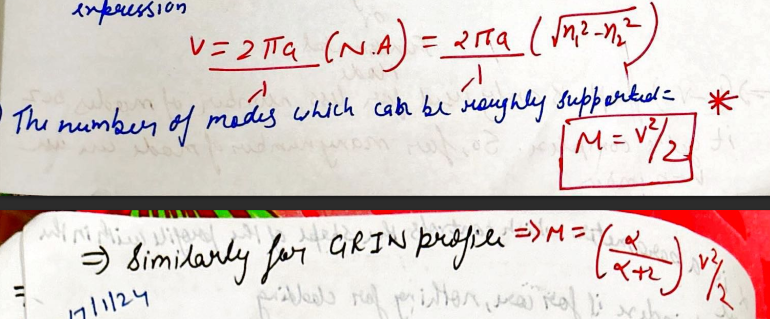 expression
V = 2πa/λ (N.A) = 2πa/λ (√n₁² - n₂²)
The number of modes which can be roughly supported =
M = V²/2
⇒ Similarly for GRIN profile ⇒ M = (α/α+2) V²/2
17/1/24